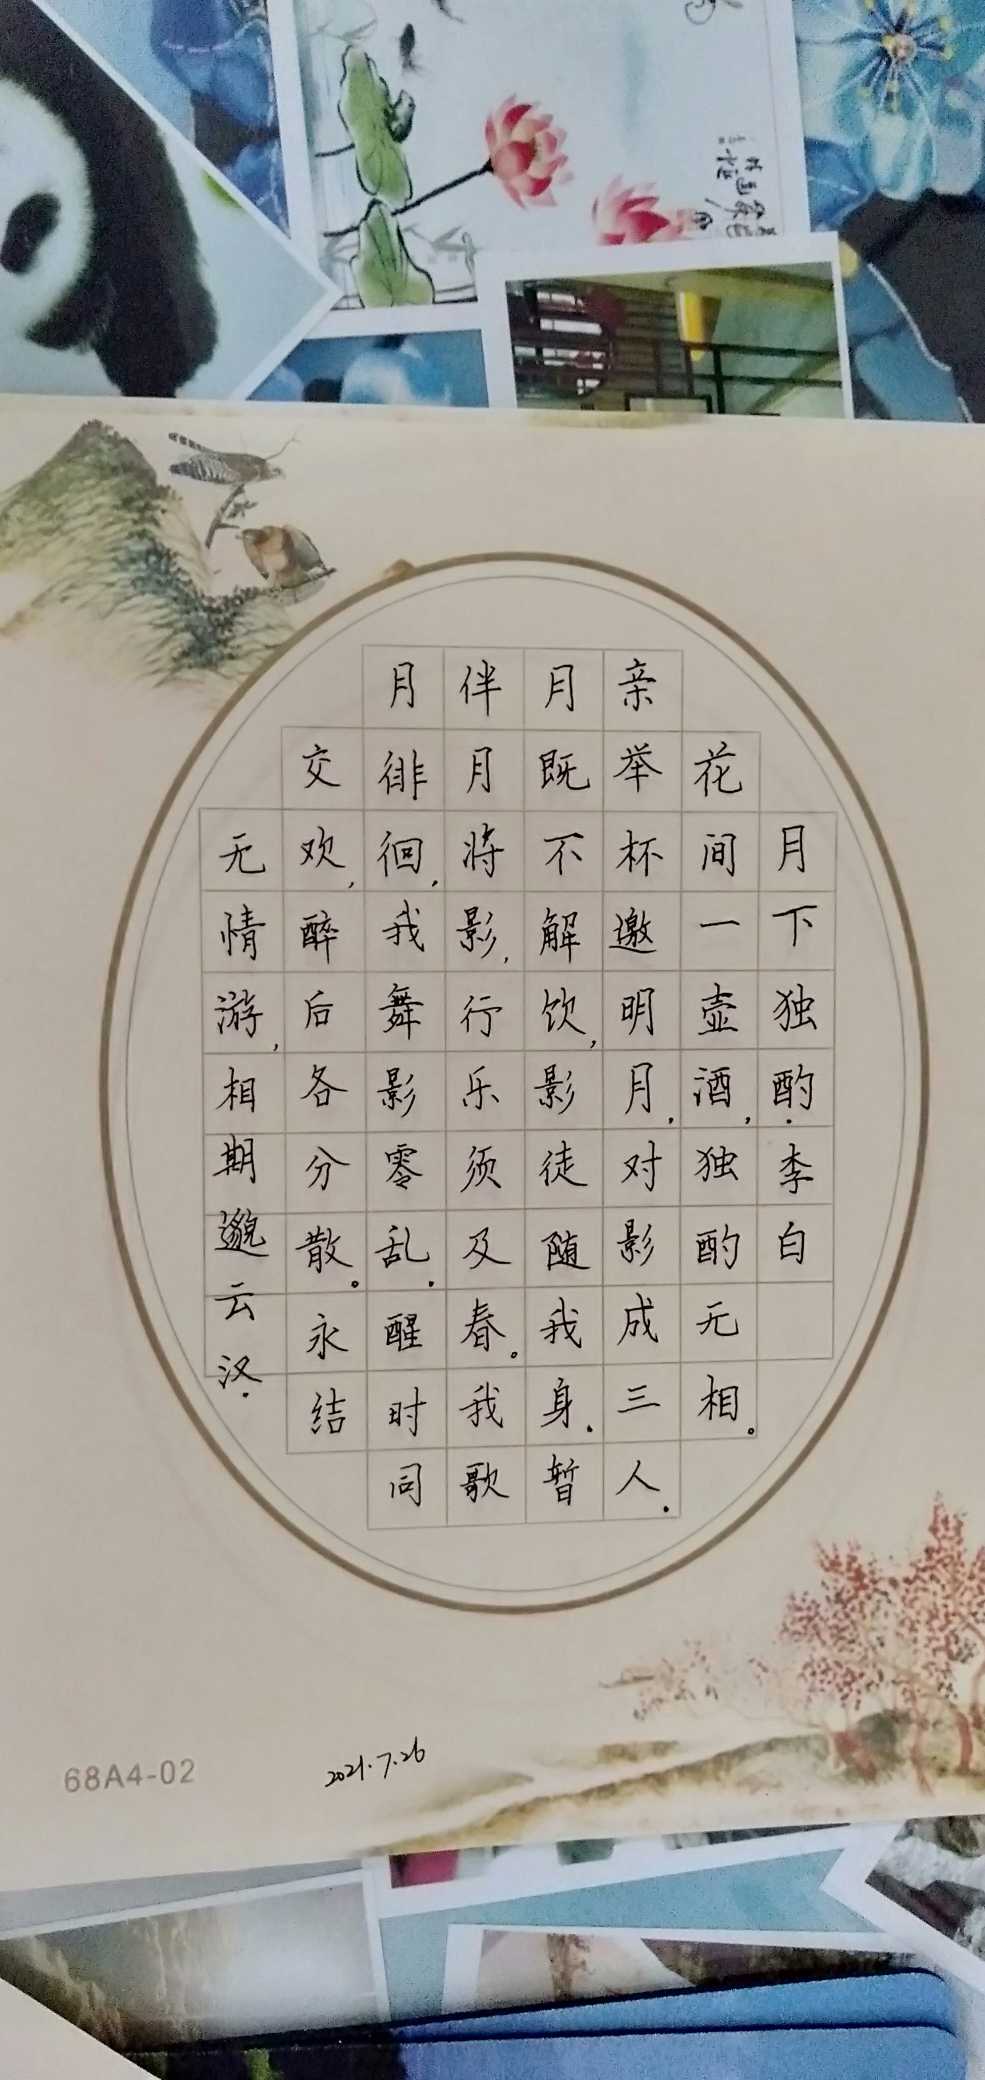 月下独酌.李白
花间一壶酒,独酌无相。
亲举杯邀明月,对影成三人.
月既不解饮,影徒随我身.暂
伴月将影,行乐须及春。我歌
月徘徊,我舞影零乱.醒时同
交欢,醉后各分散。永结
无情游,相期邈云汉.
68A4-02
2021.7.26